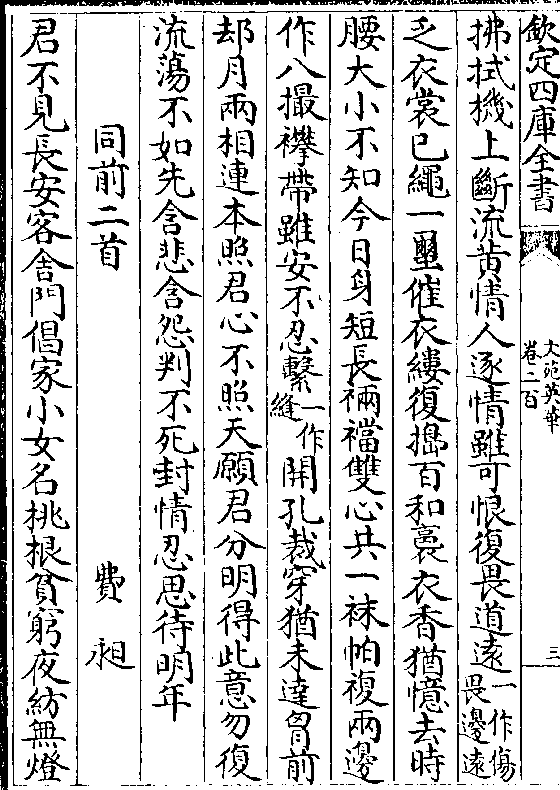 欽定四庫全書
文苑英華
卷二百
三
拂拭機上斷流黄情人逐情雖可恨復畏道遠一作傷畏邊遠
乏衣裳已繩一壐催衣縷復擣百和裛衣香猶憶去時
腰大小不知今日身短長裲襠雙心共一袜帕複兩邊
作八撮襻帶雖安不忍繫一作縫開孔裁穿猶未達胷前
却月兩相連本照君心不照天願君分明得此意勿復
流蕩不如先含悲含怨判不死封情忍思待明年
同前二首 費昶
君不見長安客舍門倡家小女名桃根貧窮夜紡無燈